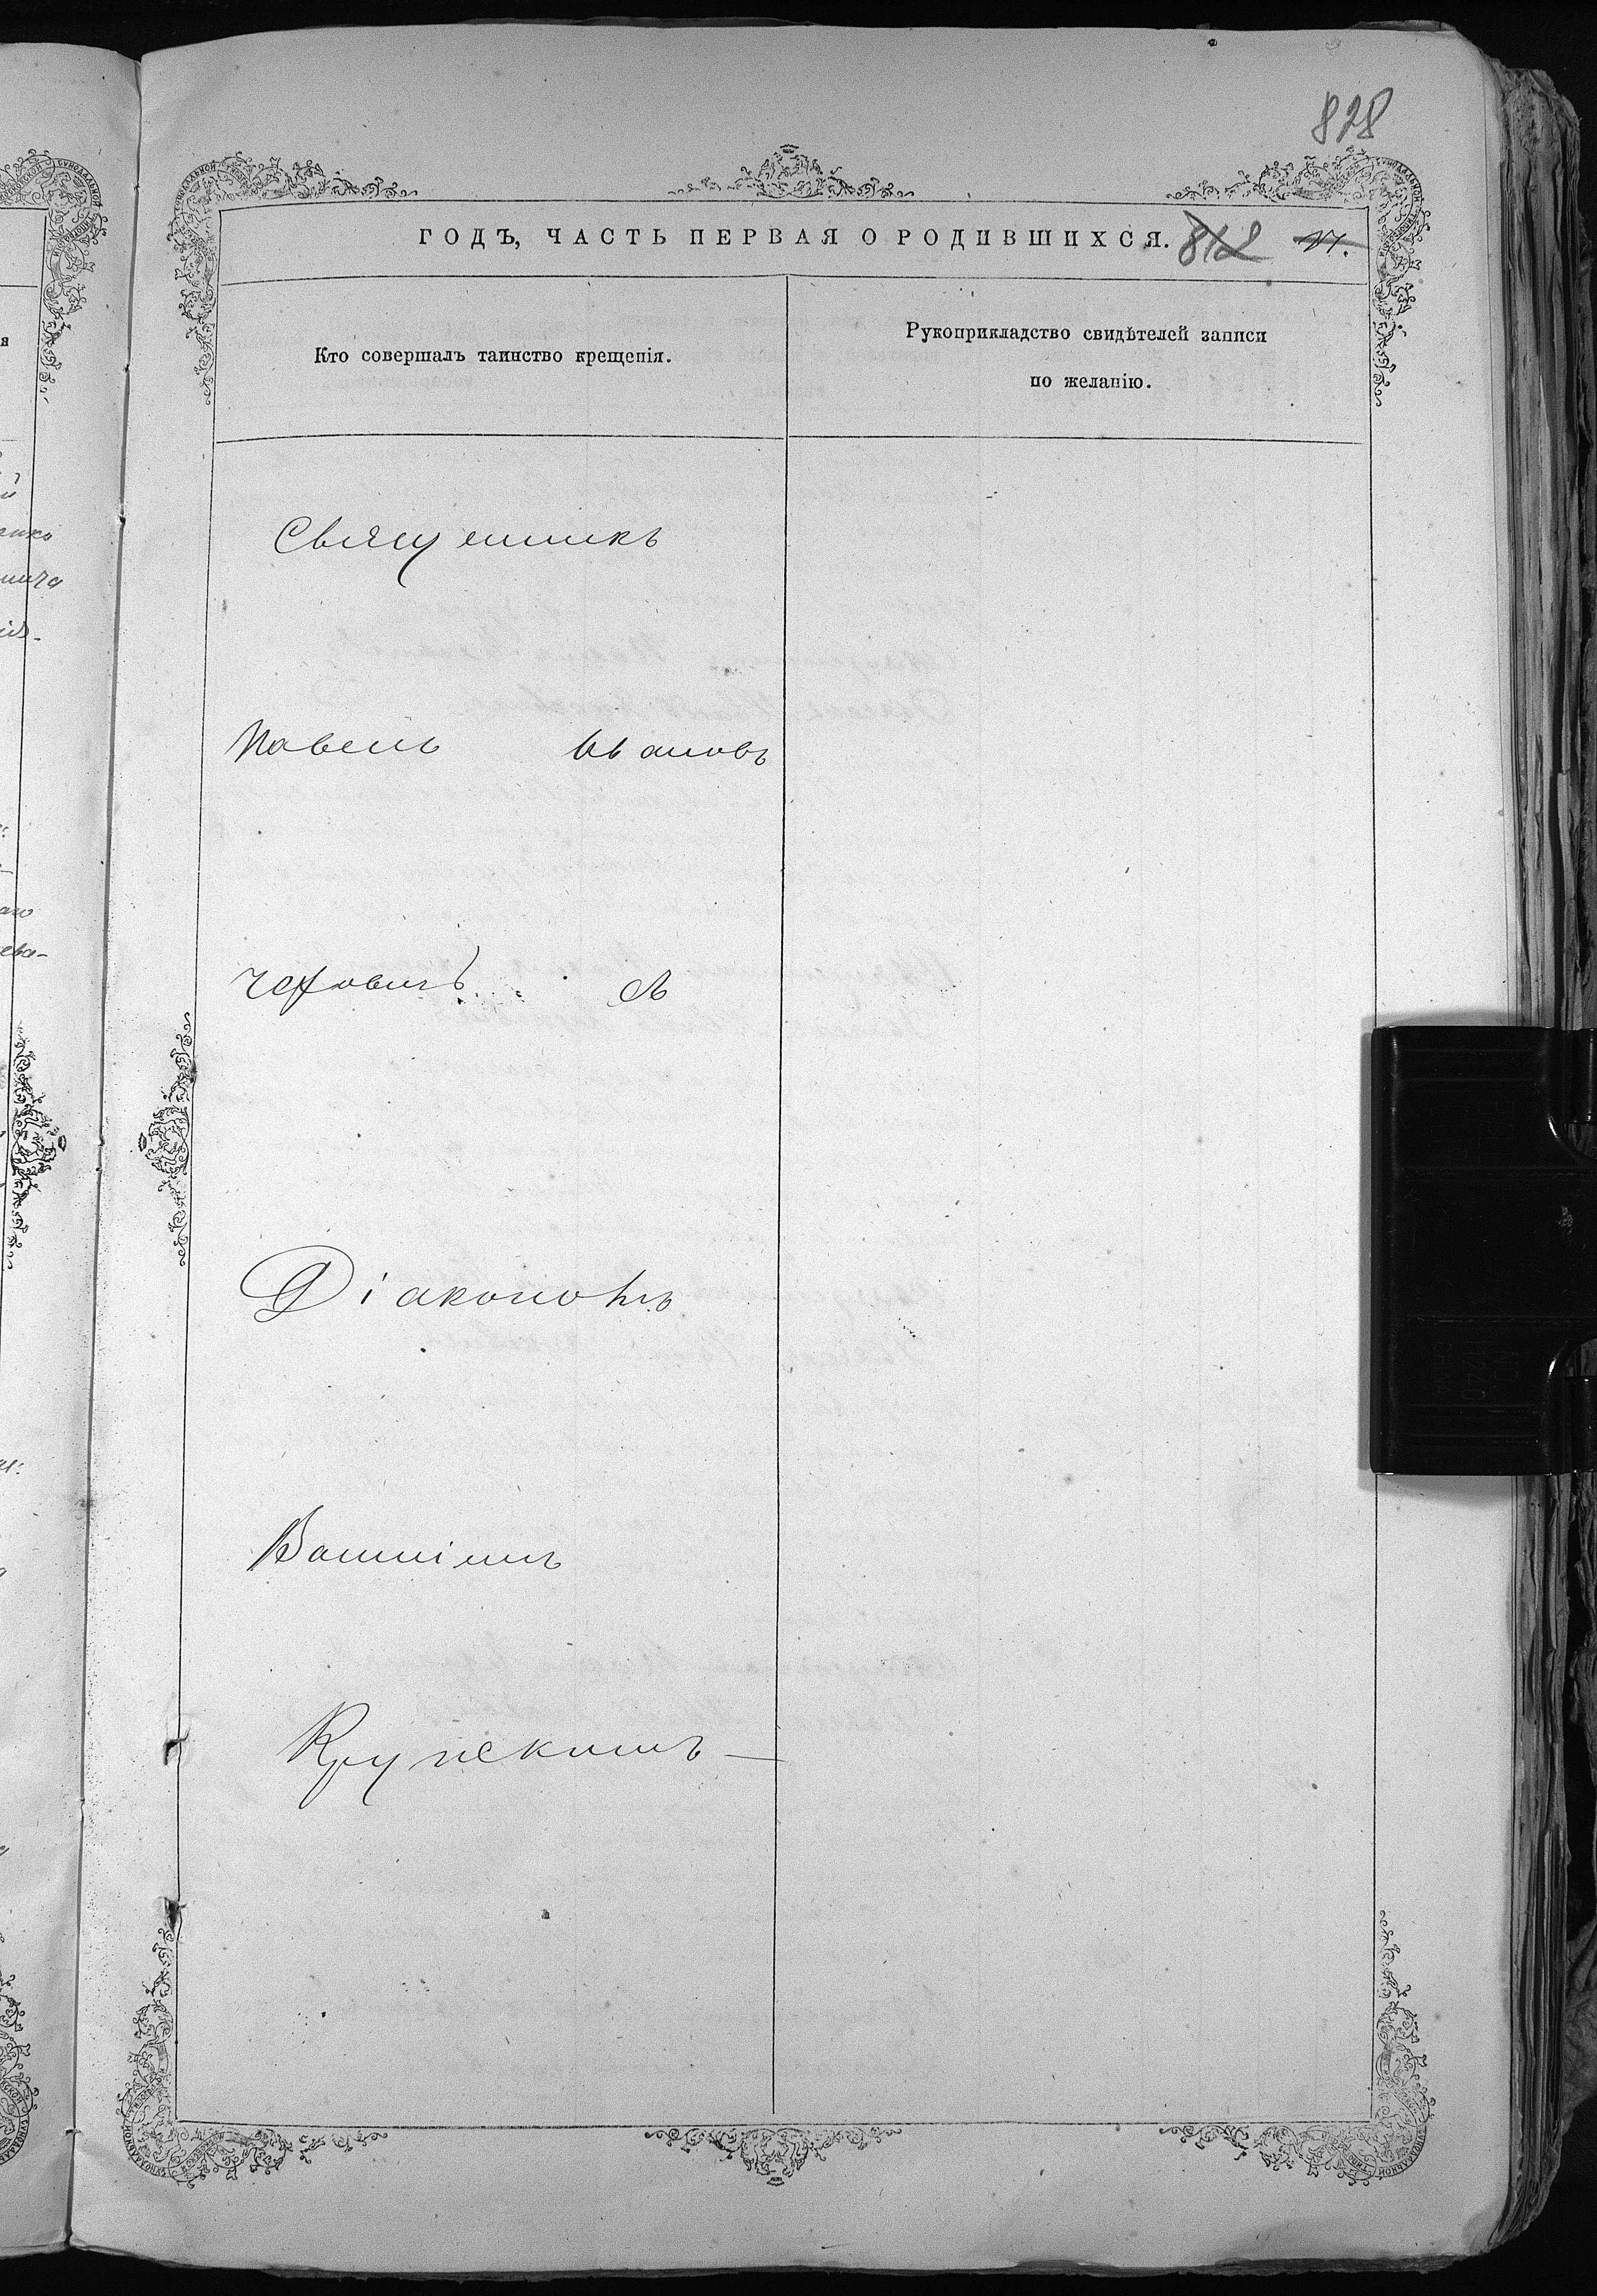 828
ГОДЪ, ЧАСТЬ ПЕРВАЯ О РОДИВШИХСЯ. 812
Кто совершалъ таинство крещенія.
Рукоприкладство свидѣтелей записи
по желанію.
Священникъ
Павелъ Ивановъ
съ
Діакономъ
Крупскимъ —